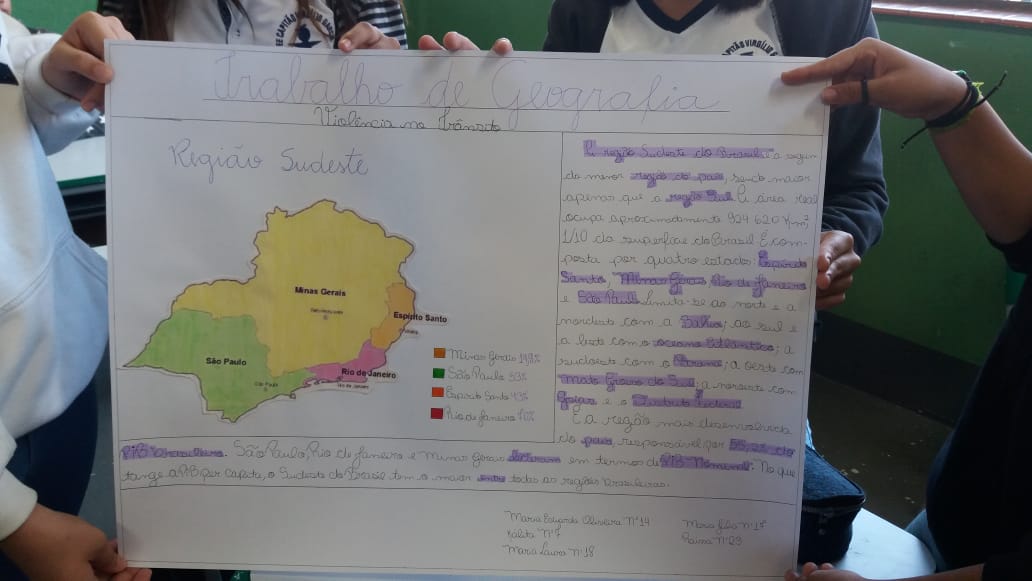 Trabalho de Geografia
Violência no Trânsito
Região Sudeste
Minas Gerais
Espírito Santo
São Paulo
São Paulo
Rio de Janeiro
Rio de Janeiro
Minas Gerais 19,8%
São Paulo 33%
Espirito Santo 4,3%
Rio de Janeiro 10%
A região Sudeste do Brasil é a região
do menor região do país, sendo maior
apenas que a região Sul. A área real
ocupa aproximadamente 924 620 Km²,
1/10 da superfície do Brasil É com-
posta por quatro estado: Espirito
Santo, Minas Gerais, Rio de Janeiro
e São Paulo. Limita-se ao norte e a
nordeste com a Bahia; ao sul e
a leste com o oceano Atlântico; a
sudoeste com o Paraná; a oeste com
Mato Grosso do Sul; a noroeste com
Goias e o Distrito Federal
É a região mais desenvolvida
do país responsável por do
PIB brasileiro. São Paulo, Rio de Janeiro e Minas Gerais em termos de PIB Nominal. No que
tange a PIB per capita, o Sudeste do Brasil tem o maior entre todas as regiões brasileiras.
Maria Eduarda Oliveira N°14
Kalita N°7
Maria Laura n°18
Maria n°15
Raissa N°23